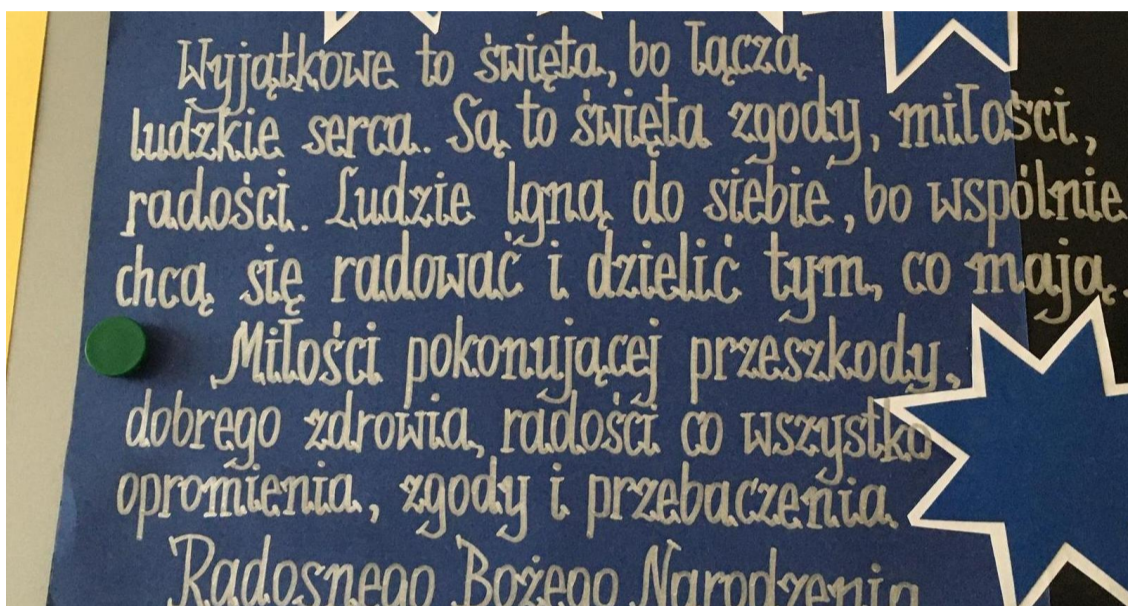 Wyjątkowe to święta, bo łączą
ludzkie serca. Są to święta zgody, miłości,
radości. Ludzie lgną do siebie, bo wspólnie
chcą się radować i dzielić tym, co mają.
Miłości pokonującej przeszkody,
dobrego zdrowia, radości co wszystko
opromienia, zgody i przebaczenia.
Radosnego Bożego Narodzenia